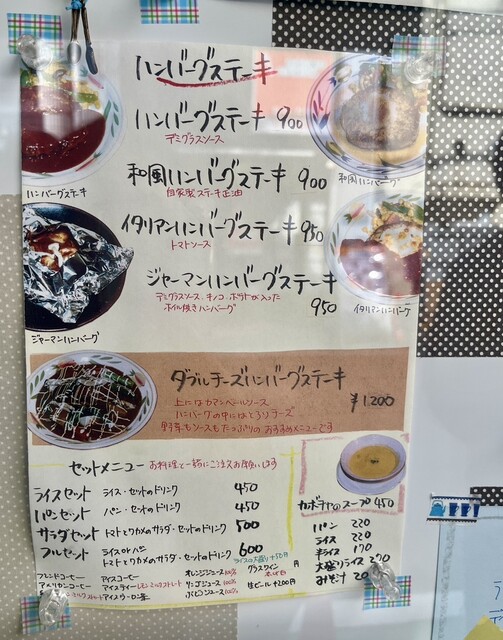 ハンバーグステーキ
ハンバーグステーキ 900
デミグラスソース
ハンバーグステーキ
和風ハンバーグステーキ 900
自家製ステーキ正油
和風ハンバーグ
イタリアンハンバーグステーキ 950
トマトソース
イタリアンハンバーグ
ジャーマンハンバーグステーキ
デミグラスソース・キノコ・ポテトが入った
ホイル焼きハンバーグ
950
ジャーマンハンバーグ
ダブルチーズハンバーグステーキ
¥1,200
上にはカマンベールソース
ハンバーグの中にはとろりチーズ
野菜もソースもたっぷりのおすすめメニューです
セットメニュー お料理と一緒にご注文お願いします
ライスセット ライス・セットのドリンク 450
パンセット パン・セットのドリンク 450
サラダセット トマトとワカメのサラダ・セットのドリンク 500
フルセット ライスorパン
トマトとワカメのサラダ・セットのドリンク 600
ライス大盛り+50円
カボチャのスープ 450
パン 220
ライス 220
半ライス 170
大盛りライス 270
みそ汁 220
ブレンドコーヒー アイスコーヒー オレンジジュース100% グラスワイン
アメリカンコーヒー アイスティー レモンミルクストレート リンゴジュース100%
アイスウーロン茶 生ビール+200円